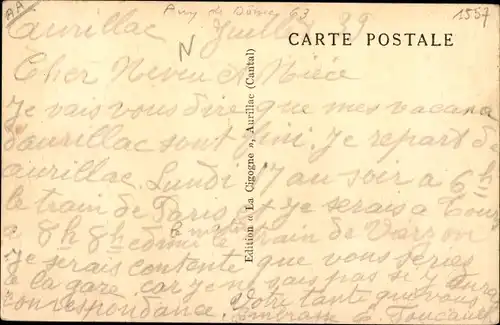 AA
Puy de Dôme 63
1557
Aurillac Juillet 39
N
CARTE POSTALE
Cher Neveu et Nièce
je vais vous dire que mes vacances
d'aurillac sont fini. Je repart de
aurillac Lundi 17 au soir à 6h
le train de Paris et je serais a
a 8h 8h le train de
je serais contente que vous
a la gare car je ne sais pas si y aura
correspondance. Votre tante que vous
Embrasse
Edition « La Cigogne », Aurillac (Cantal)